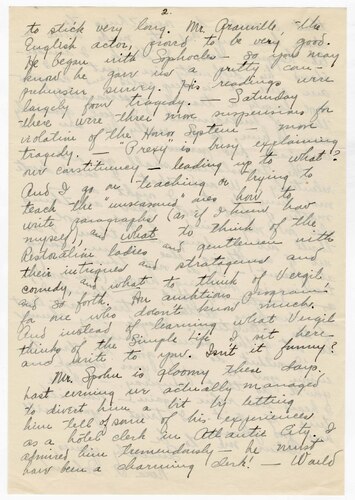 2.
to stick very long. Mr. Granville, "the
English actor, proved to be very good.
He began with Sophocles – so you may
know he gave us a pretty com-
prehensive survey. His readings were
largely from tragedy. – Saturday
there were three more suspensions for
violation of the Honor System – more
tragedy. – "Prexy" is busy explaining
our constituency – leading up to what?
And I go on teaching or trying to
teach the ones how to
write paragraphs (as if I knew how
myself) and what to think of the
Restoration ladies and gentlemen with
their intrigues and strategems and
comedy, and what to think of Vergil
and so forth. An ambitious program
for one who doesn't know much.
And instead of learning what Vergil
thinks of the Simple Life I sit here
and write to you. Isn't it funny?
Mr. Spohn is gloomy these days.
Last evening we actually managed
to divert him a bit by letting
him tell of some of his experiences
as a hotel clerk in Atlantic City. I
admired him tremendously – he must
have been a charming clerk! – Would